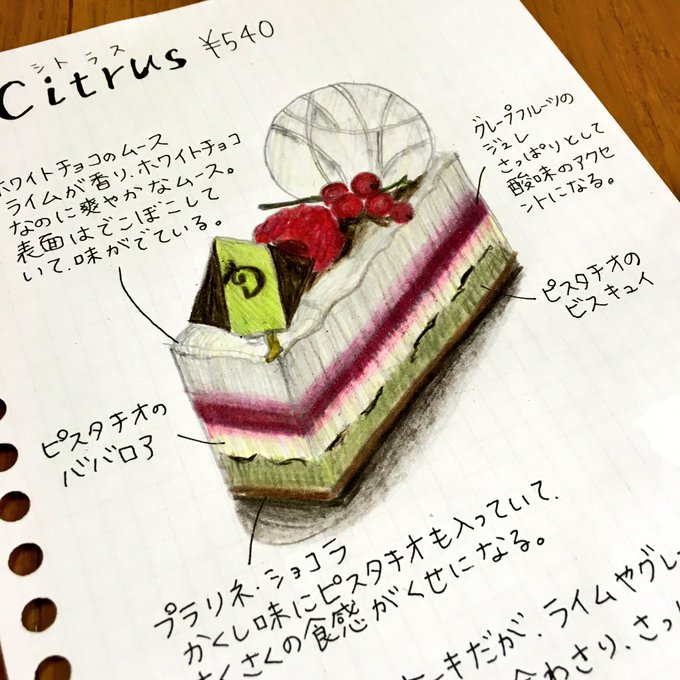 シトラス
Citrus ¥540
ホワイトチョコのムース
ライムが香り、ホワイトチョコ
なのに爽やかなムース。
表面はでこぼこして
いて、味がでている。
グレープフルーツの
ジュレ
さっぱりとして
酸味のアクセ
ントになる。
ピスタチオの
ビスキュイ
ピスタチオの
ババロア
プラリネ・ショコラ
かくし味にピスタチオも入っていて、
さくさくの食感がくせになる。
ーキだが、ライムやグレ
合わさり、さっ